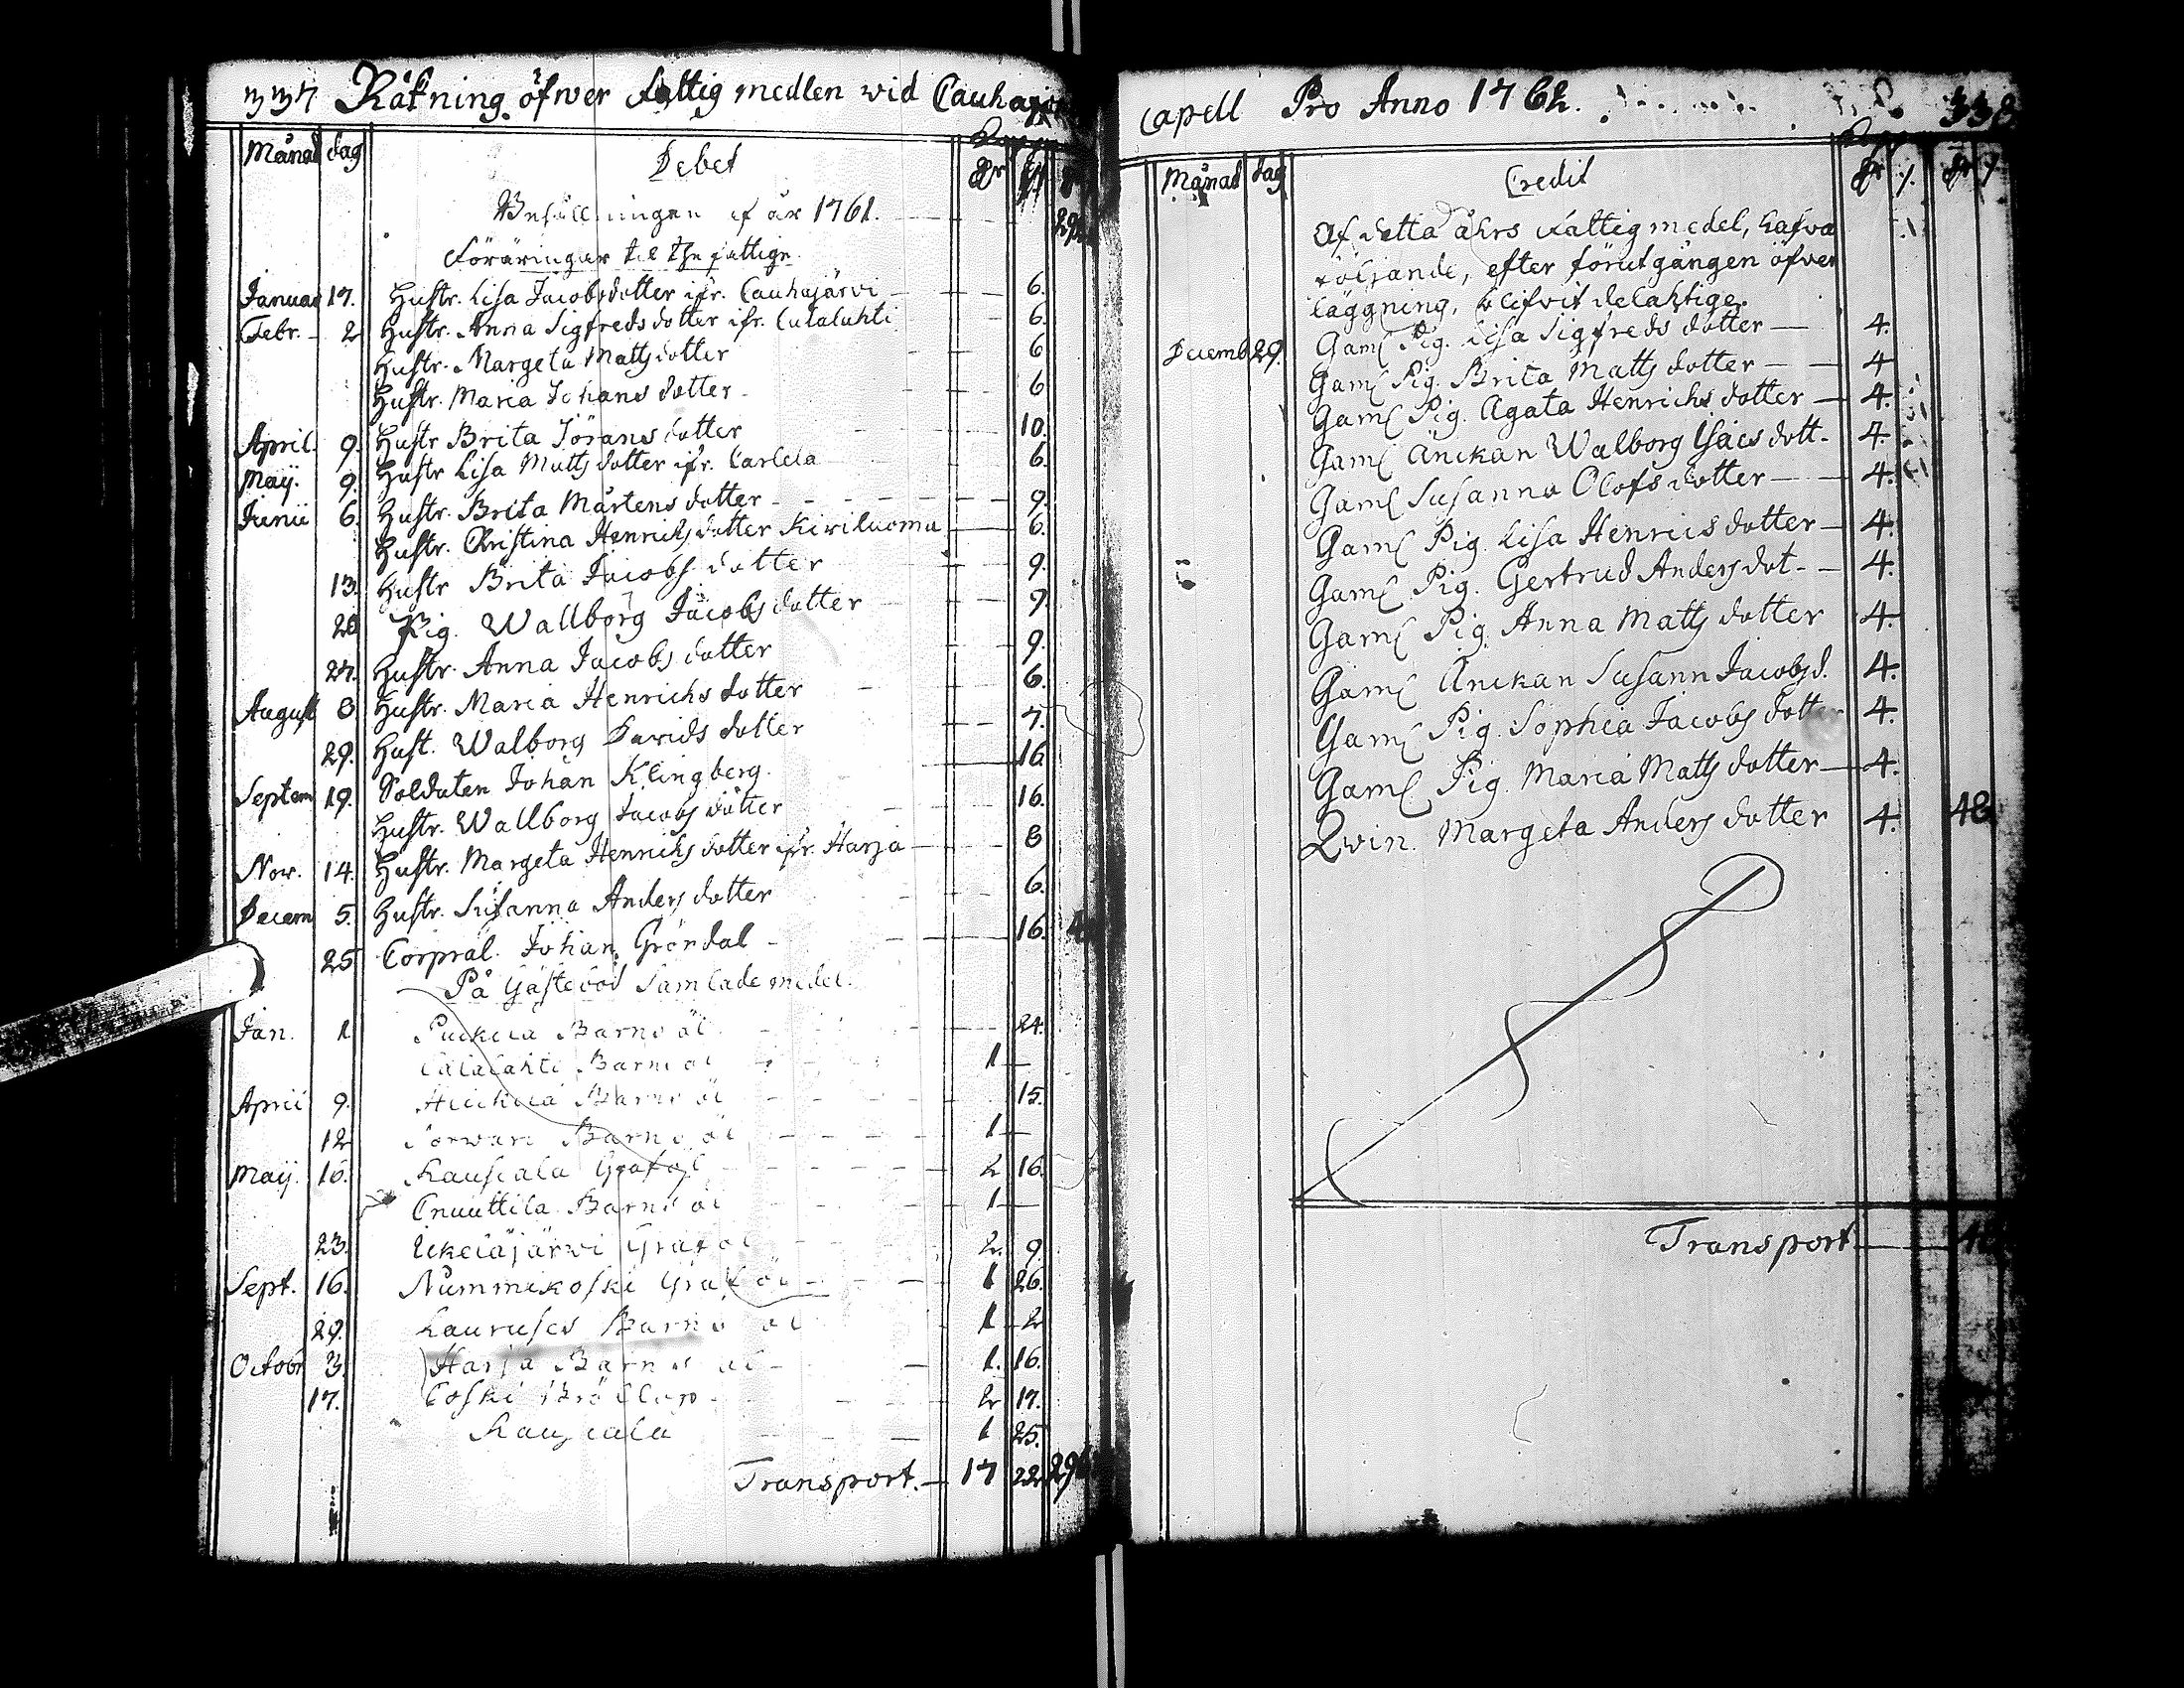 337 Räkning öfwer fattig medlen wid Cauhajo
Månad dag Debet
af år 1761.
Föräringar til the fattige.
Januar 17. Hustr. Lisa Jacobsdotter ifr. Cauhajärvi 6.
Febr. 2 Hustr. Anna Sigfredsdotter ifr. 6.
Hustr. Margeta Mattsdotter 6
Hustr. Maria Johansdotter 6
April. 9. Hustr Brita Jöransdotter 10.
Maij. 9. Hustr Lisa Mattsdotter ifr. Carlela 6.
Junii 6. Hustr. Brita Mårtensdotter 9.
Hustr. Christina Henrichsdotter Kiviluoma 6.
13. Hustr Brita Jacobsdotter 9.
20 Pig. Wallborg Jacobsdotter 9.
27. Hustr. Anna Jacobsdotter 9.
August 8. Hustr. Maria Henrichsdotter 6.
29. Hust. Walborg Davidsdotter 7.
Septem 19. Soldaten Johan Klingberg. 16.
Hustr. Wallborg Jacobsdotter 16.
Nov. 14. Hustr. Margeta Henrichsdotter ifr. Harja 8
Decem 5. Hustr. Susanna Andersdotter 6.
25 Corpral. Johan Gröndal 16.
På Gästebod Samlade medel.
Jan. 1 Barns öl 24.
Barns öl 1
April 9. Barns öl 15.
12 Barns öl 1
Maij. 16. Graföl 2 16.
Cnuuttila Barns öl 1
23. Ikeläjärvi Graföl 2. 9.
Sept. 16. Nummikoski Graföl 1 26.
29. Barns öl 1 2
Octobr 3. Harja Barns öl 1. 16.
17. Coski Bröllop 2 17.
1 25.
Transport. 17 22
capell Pro Anno 1762. 338
Månad dag Credit
Af detta åhrs fattig medel, hafva
följande, efter förutgången öfver
läggning, blifvit delaktige.
Gaml Pig. Lisa Sigfredsdotter 4.
Decemb 29. Gaml Pig. Brita Mattsdotter 4
Gaml Pig. Agata Henrichsdotter 4.
Gaml Änckan Walborg Isacsdott. 4.
Gaml Susanna Olofsdotter 4.
Gaml Pig. Lisa Henricsdotter 4.
Gaml Pig. Gertrud Andersdot. 4.
Gaml Pig. Anna Mattsdotter 4.
Gaml Änckan Susann Jacobsd. 4.
Gaml Pig. Sophia Jacobsdotter 4.
Gaml. Pig. Maria Mattsdotter 4.
Qvin. Margeta Andersdotter 4. 48
Transport 48